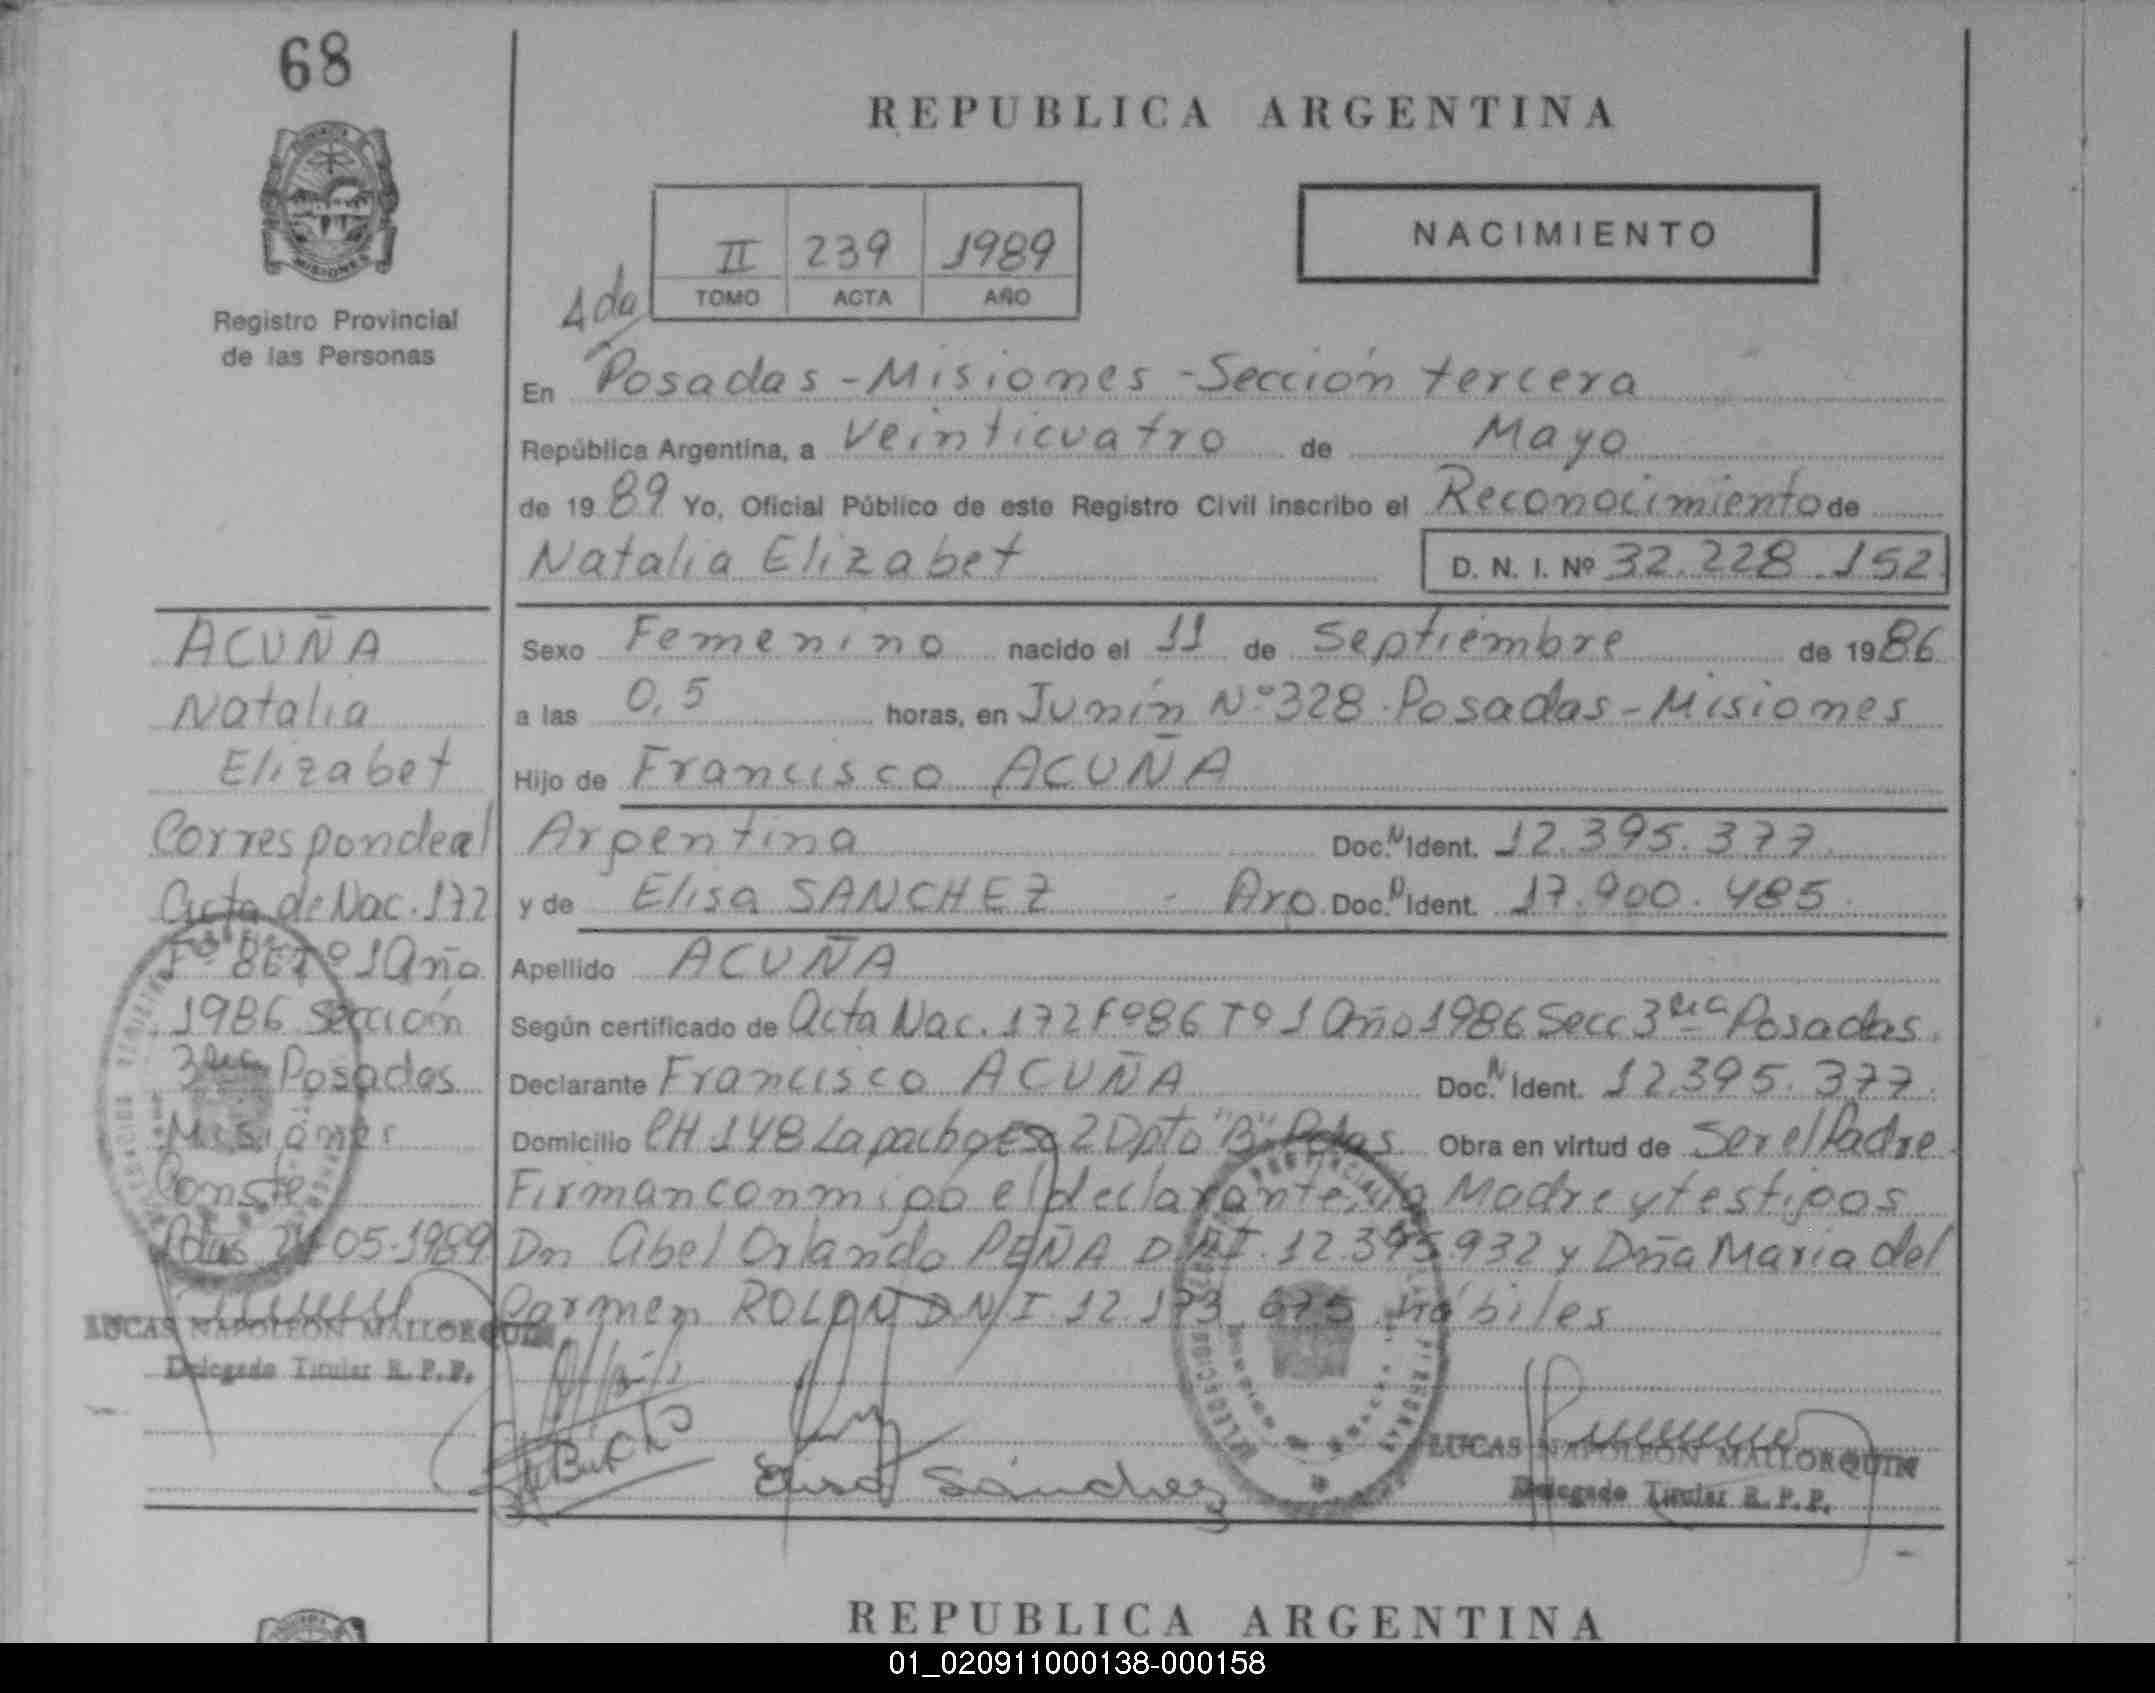 68
REPUBLICA ARGENTINA
MISIONES
Registro Provincial
de las Personas
II 239 1989
TOMO ACTA AÑO
NACIMIENTO
Ada
En Posadas - Misiones - Sección tercera
República Argentina, a Veinticuatro de Mayo
de 1989 Yo, Oficial Público de este Registro Civil inscribo el Reconocimiento de
Natalia Elizabet D. N. I. Nº 32.228.152
Sexo Femenino nacido el 11 de Septiembre de 1986
a las 0,5 horas, en Junín Nº 328 Posadas - Misiones
Hijo de Francisco ACUÑA
Argentina Doc. N Ident. 12.395.377
y de Elisa SANCHEZ - Arg. Doc. Ident. 17.900.485
Apellido ACUÑA
Según certificado de Acta Nac. 172 Fº 86 Tº 1 Año 1986 Secc 3era Posadas
Declarante Francisco ACUÑA Doc. N Ident. 12.395.377
Domicilio CH 148 Lapacho Esc 2 Dpto "B" Pdas Obra en virtud de Ser el Padre
Firman conmigo el declarante, la Madre y testigos
Dn Abel Orlando PEÑA D.N.I. 12.395.932 y Dña Maria del
Carmen ROLON D N I 12.173.675 hábiles
Elisa Sánchez
LUCAS NAPOLEON MALLORQUIN
Delegado Titular R. P. P.
ACUÑA
Natalia
Elizabet
Corresponde al
Acta de Nac. 172
Fº 86 Tº 1 Año
1986 Sección
3era Posadas
Misiones
Conste
Pdas 24-05-1989
LUCAS NAPOLEON MALLORQUIN
Delegado Titular R. P. P.
REPUBLICA ARGENTINA
01_020911000138-000158